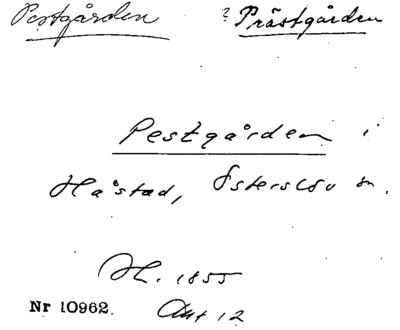 Pestgården ? Prästgården
Pestgården i
Håstad, Österslöv sn.
H. 1855
Nr 10962. Akt 12